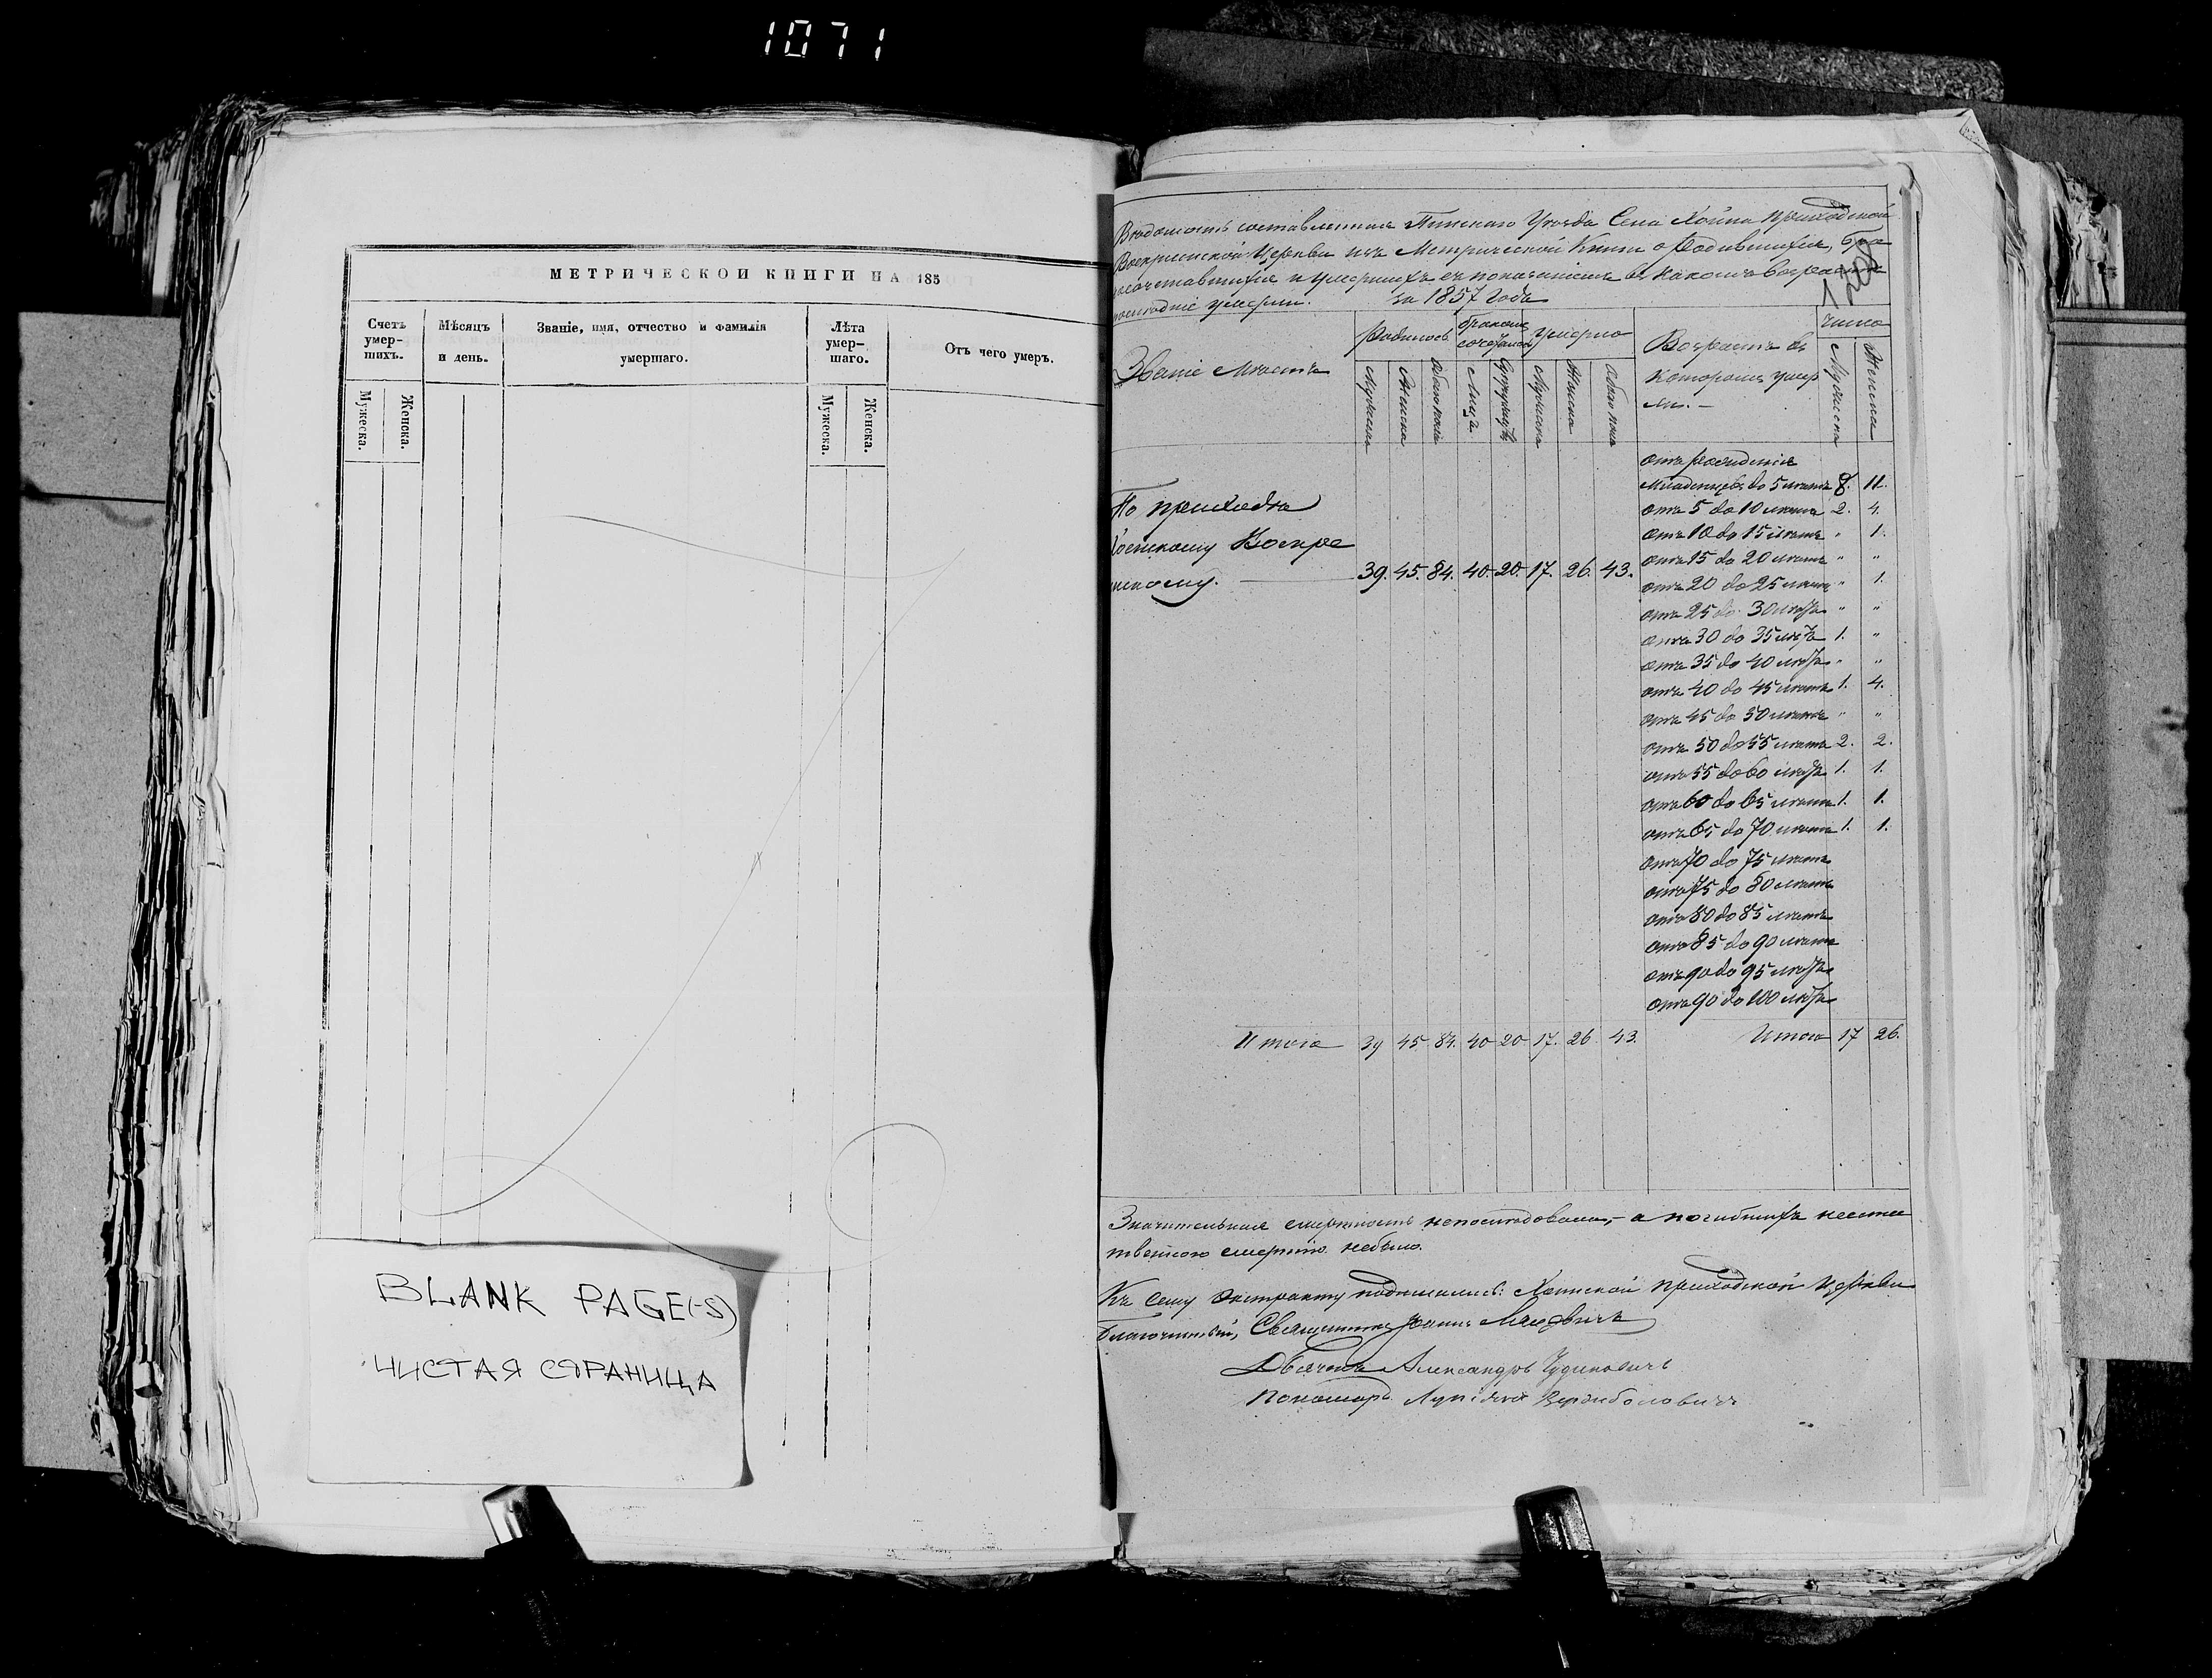 1071
МЕТРИЧЕСКОЙ КНИГИ НА 185
Счетъ умер-шихъ.
Мѣсяцъ и день.
Званіе, имя, отчество и фамилія умершаго.
Лѣта умер-шаго.
Отъ чего умеръ.
Мужеска.
Женска.
Мужеска.
Женска.
BLANK PAGE(-S)
ЧИСТАЯ СТРАНИЦА
Вѣдомость составленная Пинскаго Уѣзда Села Хойна приходской
Воскресенской Церкви изъ Метрической Книги о Родившихся, Бра
косочетавшихся и умершихъ съ показаніемъ въ какомъ возрастѣ
послѣдніе умерли. за 1857 Годъ
Званіе мѣстъ
Родилось
Бракомъ сочеталось
Умерло
Возрастъ въ
которомъ умер
ли. —
Число
Мужеска
Женска
Обоего пола
Лицъ
Супружествъ
Мужеска
Женска
Обоего пола
Мужеска
Женска
По приходу
Хоенскому Воскре
сенскому. 39. 45. 84. 40. 20. 17. 26. 43.
отъ рожденія
Младенцевъ до 5 лѣтъ 8. 11.
отъ 5 до 10 лѣтъ 2. 4.
отъ 10 до 15 лѣтъ " 1.
отъ 15 до 20 лѣтъ " "
отъ 20 до 25 лѣтъ " 1.
отъ 25 до 30 лѣтъ " "
отъ 30 до 35 лѣтъ 1. "
отъ 35 до 40 лѣтъ " "
отъ 40 до 45 лѣтъ 1. 4.
отъ 45 до 50 лѣтъ " "
отъ 50 до 55 лѣтъ 2. 2.
отъ 55 до 60 лѣтъ 1. 1.
отъ 60 до 65 лѣтъ 1. 1.
отъ 65 до 70 лѣтъ 1. 1.
отъ 70 до 75 лѣтъ
отъ 75 до 80 лѣтъ
отъ 80 до 85 лѣтъ
отъ 85 до 90 лѣтъ
отъ 90 до 95 лѣтъ
отъ 90 до 100 лѣтъ
Итого 39 45 84. 40 20 17. 26 43. Итого 17 26.
Значительная смертность непослѣдовала, а погибшихъ неесте
ственною смертію небыло.
Къ сему Экстракту подписались: Хоинской приходской Церкви
Благочинный, Священникъ Іоаннъ
Дьячокъ Александръ
Пономарь